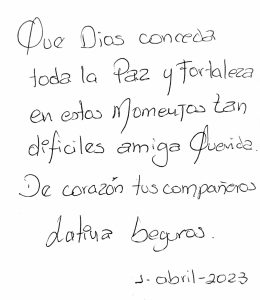 Que Dias conceda
toda la Paz y Fortaleza
en estos Momentos tan
dificiles amiga Querida.
De corazón tus compañeros
latina seguros.
5-abril-2023